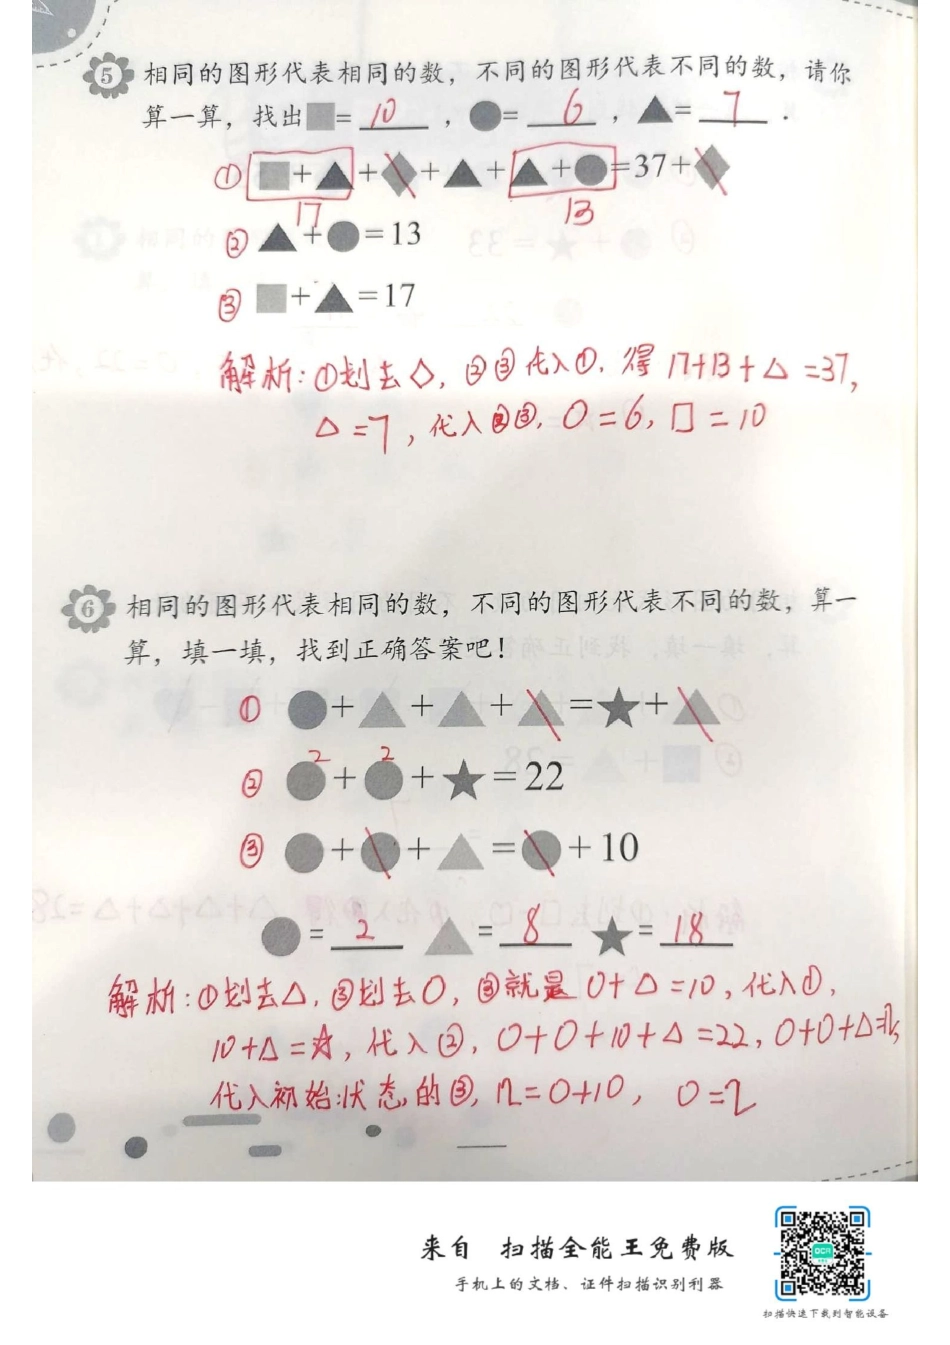 5 相同的图形代表相同的数，不同的图形代表不同的数，请你
算一算，找出■= 10 ，●= 6 ，▲= 7 .
① ■+▲+◆+▲+▲+●=37+◆
17 13
② ▲+●=13
③ ■+▲=17
解析:①划去◇,②③代入①,得17+13+△=37,
△=7,代入②③,○=6,□=10
6 相同的图形代表相同的数，不同的图形代表不同的数，算一
算，填一填，找到正确答案吧！
① ●+▲+▲+▲=★+▲
2 2
② ●+●+★=22
③ ●+●+▲=●+10
●= 2 ▲= 8 ★= 18
解析:①划去△,③划去○,③就是○+△=10,代入①,
10+△=☆,代入②,○+○+10+△=22,○+○+△=12,
代入初始状态的③,12=○+10, ○=2
来自 扫描全能王免费版
手机上的文档、证件扫描识别利器
扫描快速下载到智能设备